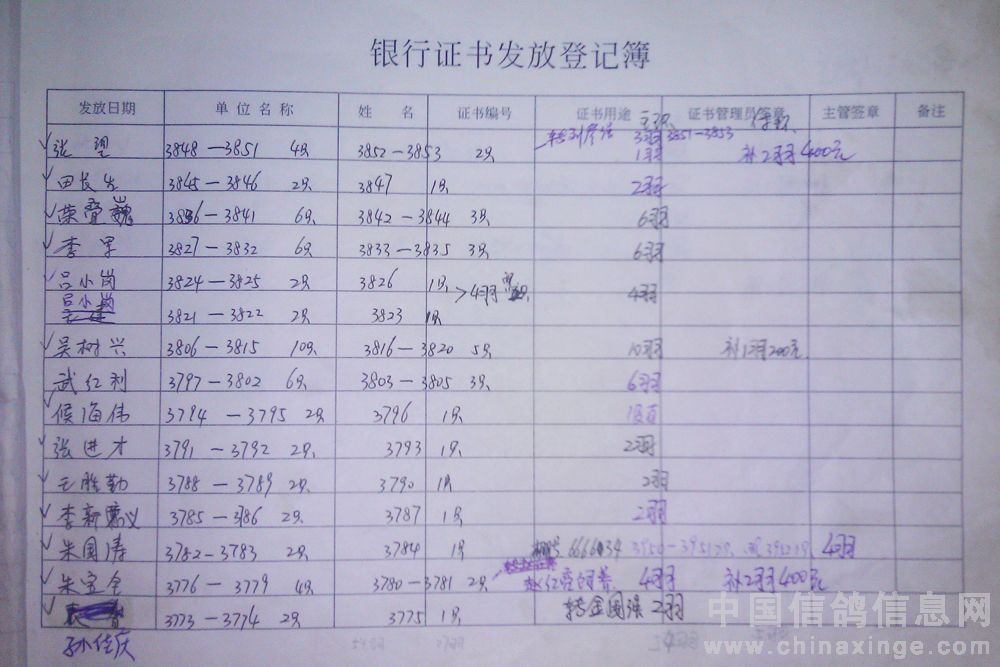 银行证书发放登记簿
发放日期 单位名称 姓 名 证书编号 证书用途 证书管理员签章 主管签章 备注
3羽 3851-3853
张 3848-3851 4只 3852-3853 2只 1羽 补2羽 400元
田长生 3845-3846 2只 3847 1只 2羽
3836-3841 6只 3842-3844 3只 6羽
李军 3827-3832 6只 3833-3835 3只 6羽
吕小岗 3824-3825 2只 3826 1只 >4羽 4羽
吕小岗 3821-3822 2只 3823 1只
吴树兴 3806-3815 10只 3816-3820 5只 10羽 补1羽200元
武红利 3797-3802 6只 3803-3805 3只 6羽
候海伟 3794-3795 2只 3796 1只
张进才 3791-3792 2只 3793 1只 2羽
王胜勤 3788-3789 2只 3790 1只 2羽
李新 3785-3786 2只 3787 1只 2羽
朱国涛 3782-3783 2只 3784 1只 3950-3951 4羽
朱宝全 3776-3779 4只 3780-3781 2只 4羽 补2羽400元
3773-3774 2只 3775 1只 转金国强 2羽
孙佳庆
中国信鸽信息网
www.chinaxinge.com